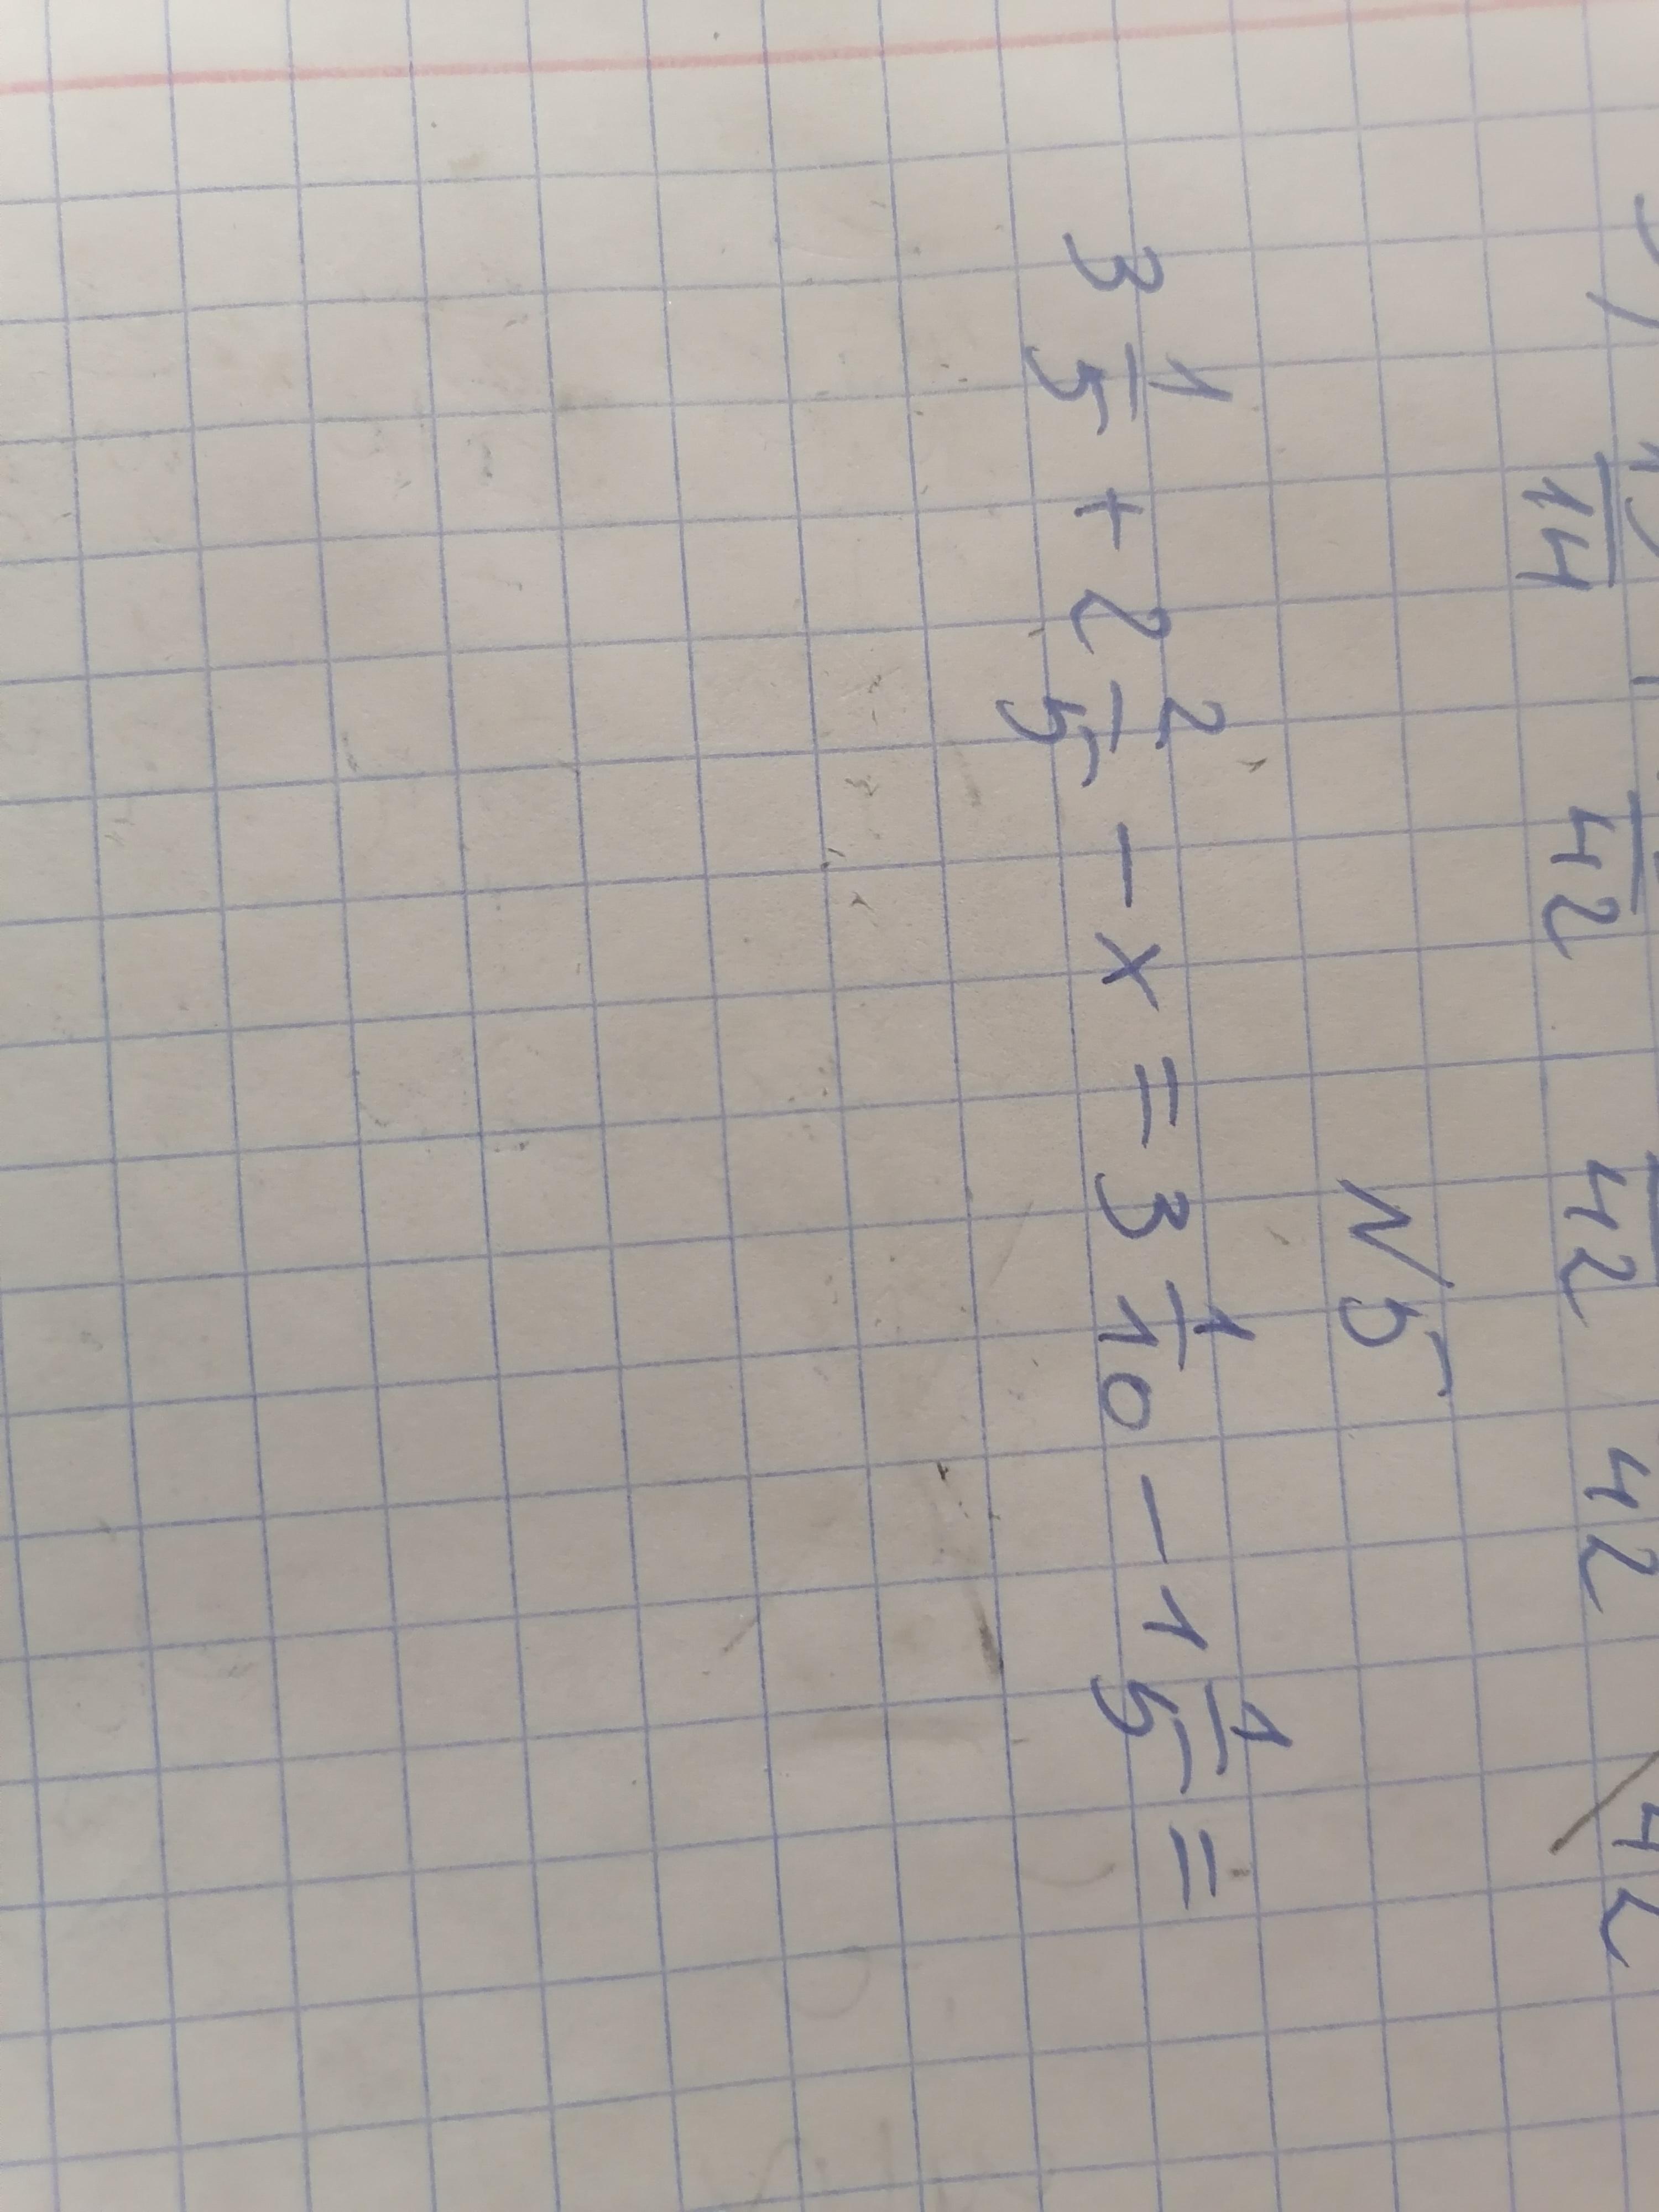 14 42 42 42 42
N5
3 1/5 + 2 2/5 - x = 3 1/10 - 1 1/5 =